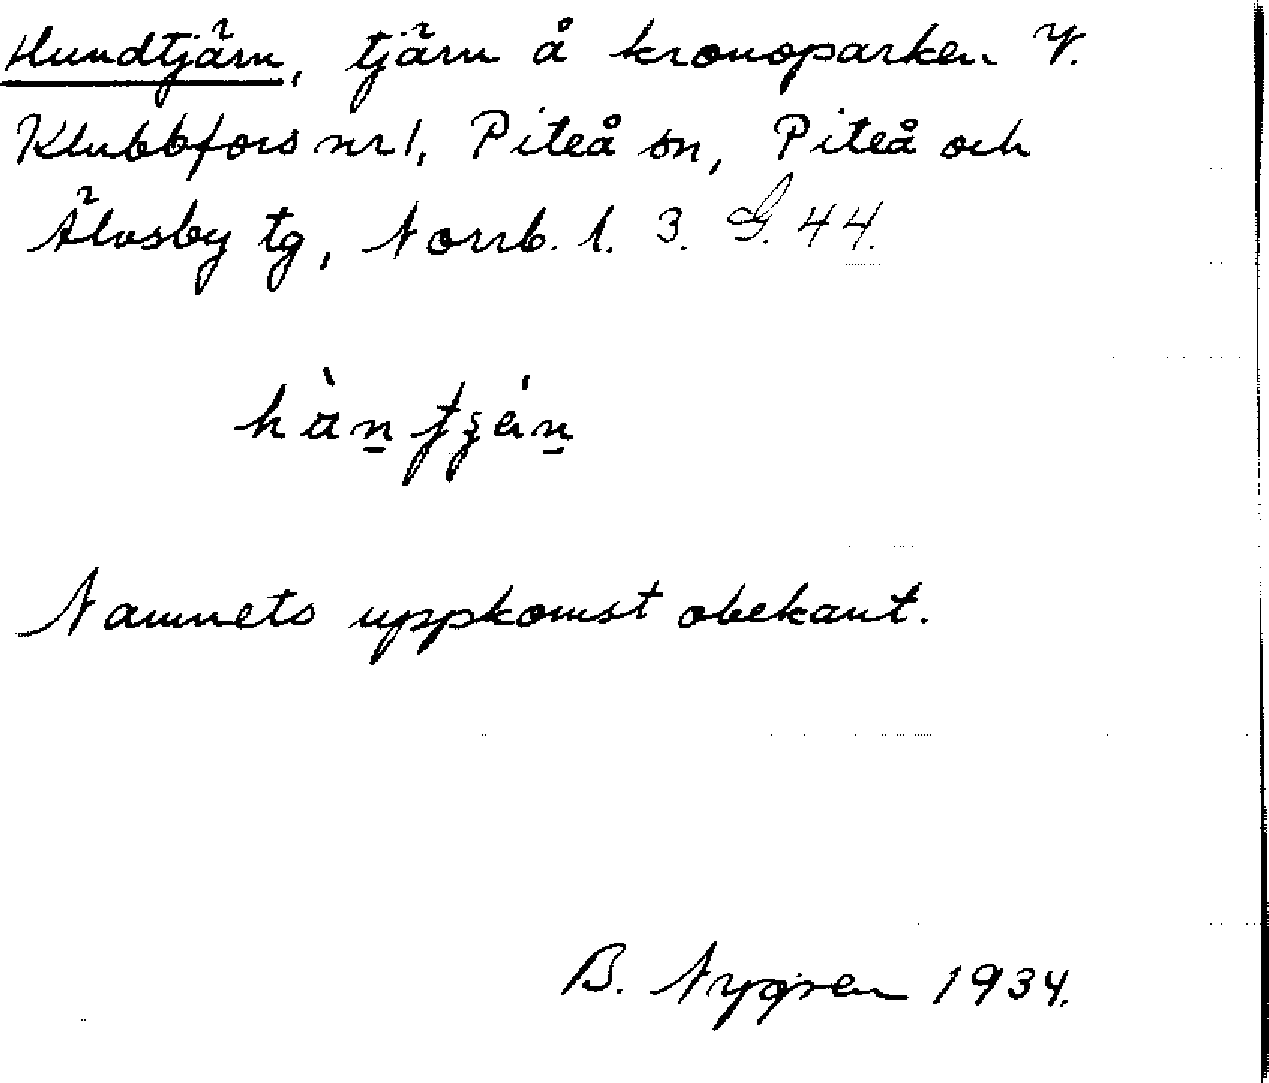 Hundtjärn, tjärn å kronoparken V.
Klubbfors nr 1, Piteå sn, Piteå och
Älvsby tg, Norrb. l. 3. G. 44.
Namnets uppkomst obekant.
B. Nygren 1934.